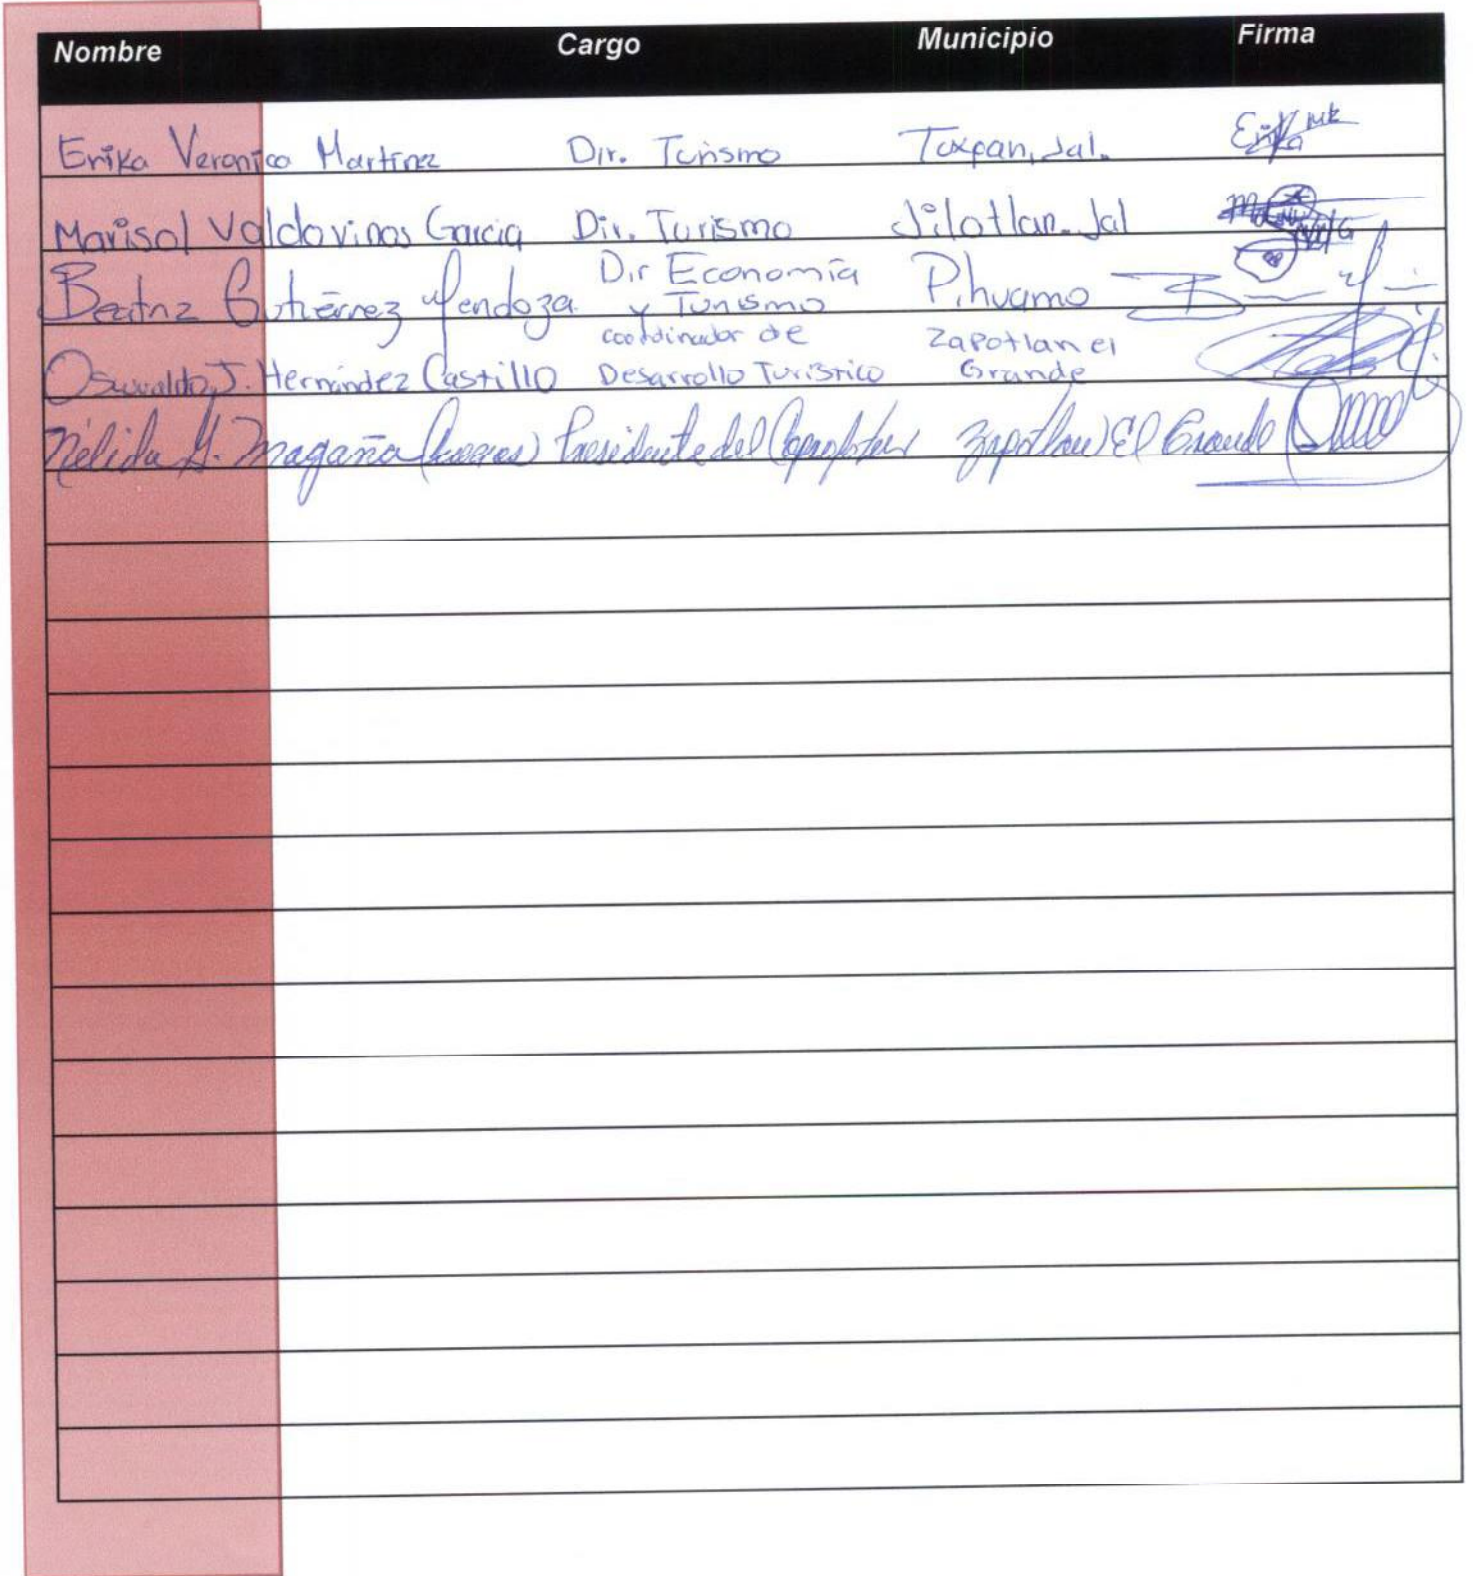 Nombre Cargo Municipio Firma
Erika Veronica Martinez Dir. Turismo Tuxpan, Jal. Erika
Marisol Valdovinos Garcia Dir. Turismo Jilotlan. Jal
Beatriz Gutiérrez Mendoza Dir Economía Pihuamo
y Turismo
coordinador de Zapotlan el
Oswaldo J. Hernández Castillo Desarrollo Turístico Grande
Nélida G. Magaña Presidente del Zapotlan El Grande